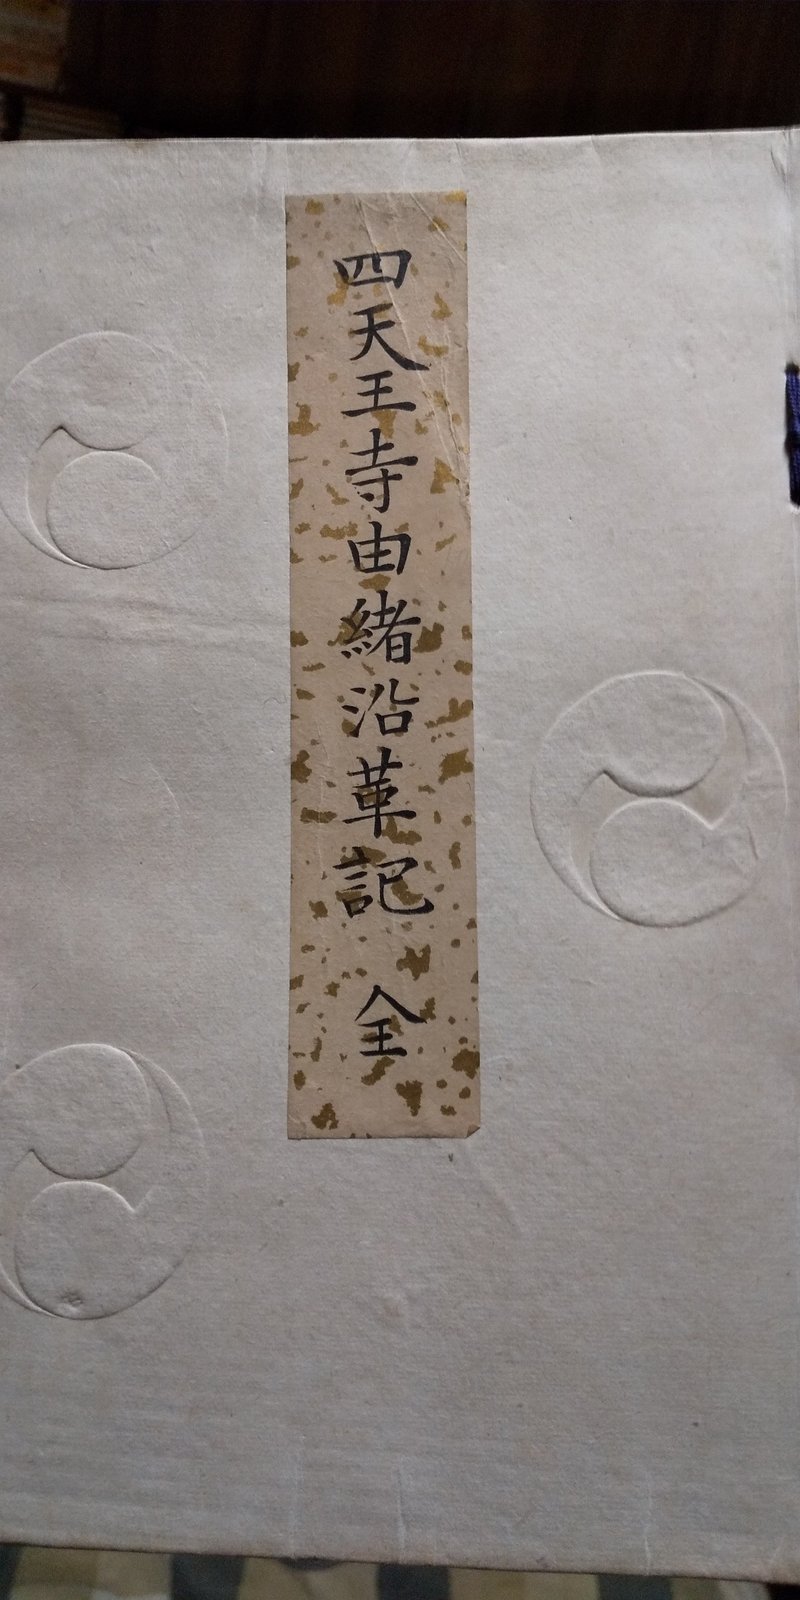 四天王寺由緒沿革記 全